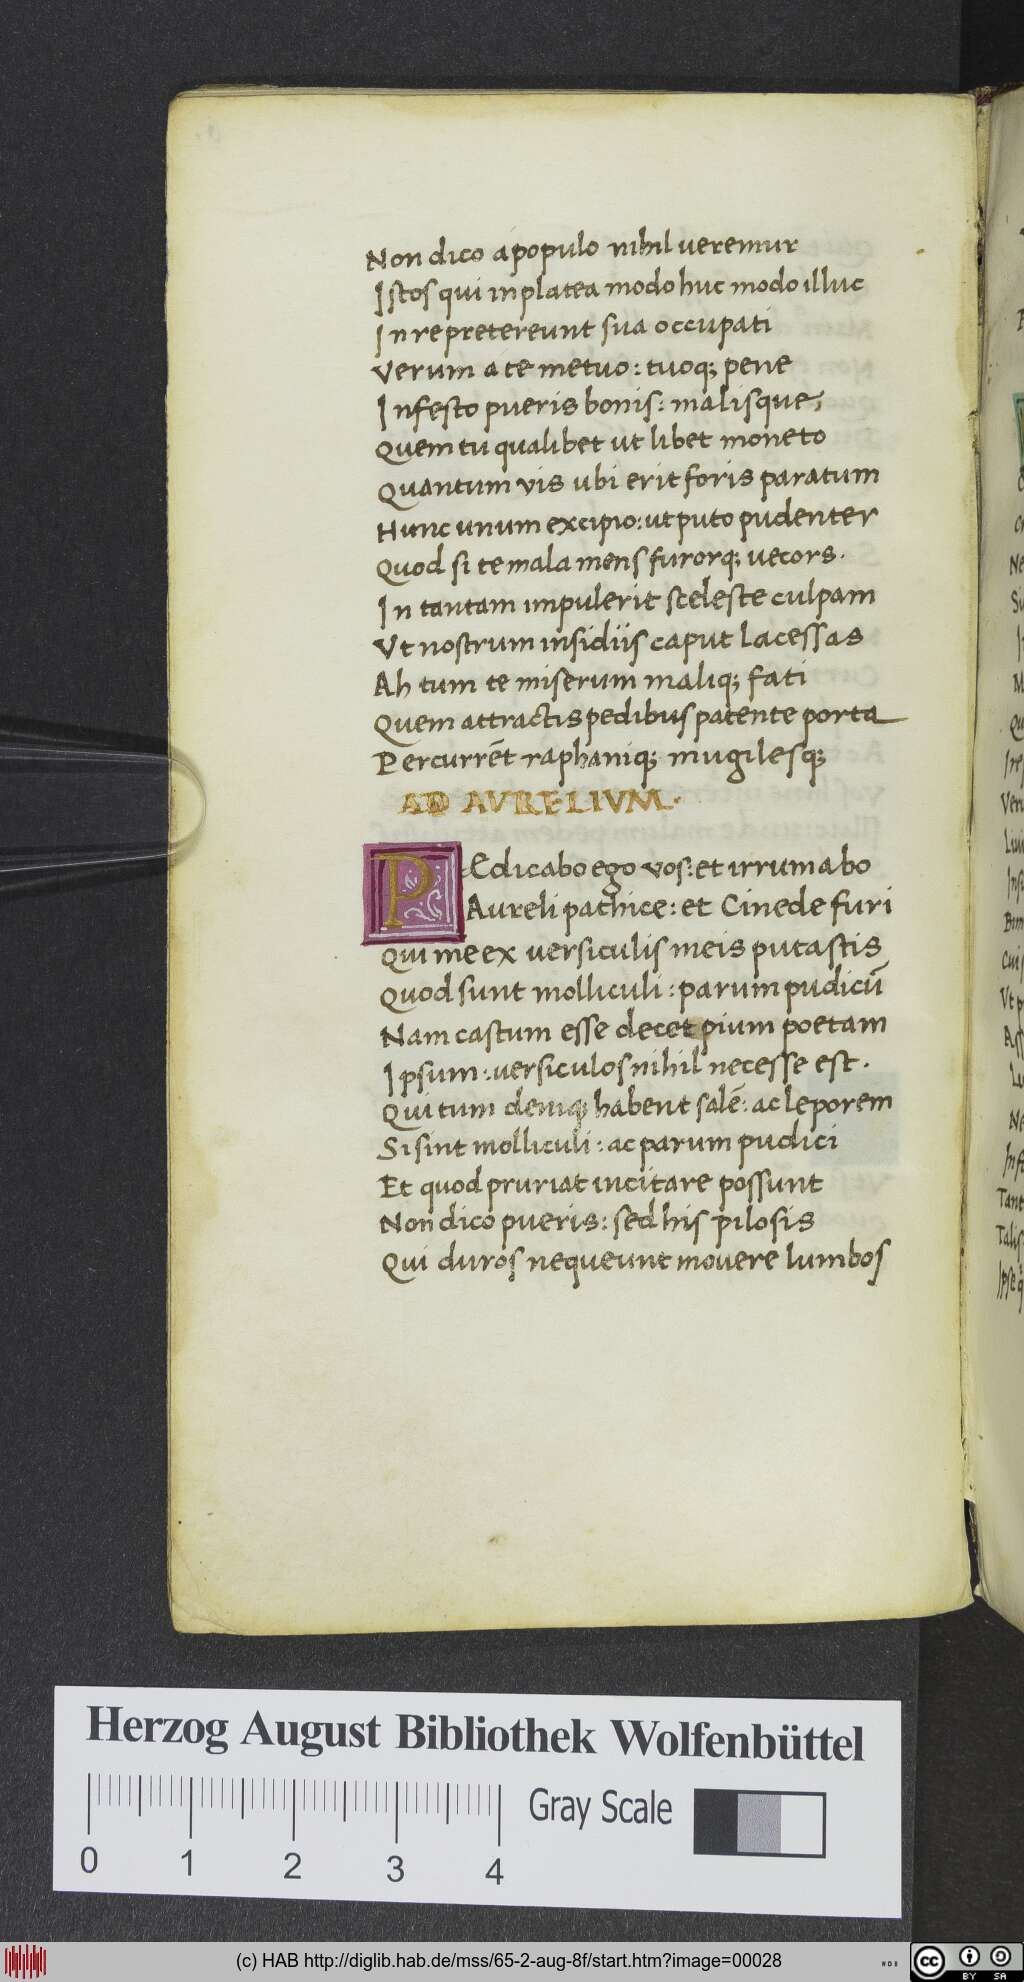 Non dico a populo nihil veremur
Istos qui in platea modo huc modo illuc
In re pretereunt sua occupati
Verum a te metuo: tuoq; pene
Infesto pueris bonis: malisque;
Quem tu qualibet ut libet moneto
Quantum vis ubi erit foris paratum
Hunc unum excipio: ut puto pudenter
Quod si te mala mens furorq; vecors.
In tantam impulerit sceleste culpam
Ut nostrum insidiis caput lacessas
Ah tum te miserum maliq; fati
Quem attractis pedibus patente porta
Percurrēt raphaniq; mugilesq;
AD AVRELIVM.
PEdicabo ego vos: et irrumabo
Aureli pathice: et Cinede furi
Qui me ex versiculis meis putastis
Quod sunt molliculi: parum pudicū
Nam castum esse decet pium poetam
Ipsum: versiculos nihil necesse est.
Qui tum deniq; habent salē: ac leporem
Si sint molliculi: ac parum pudici
Et quod pruriat incitare possunt
Non dico pueris: sed his pilosis
Qui duros nequeunt movere lumbos
Herzog August Bibliothek Wolfenbüttel
Gray Scale
0 1 2 3 4
(c) HAB http://diglib.hab.de/mss/65-2-aug-8f/start.htm?image=00028
cc BY SA